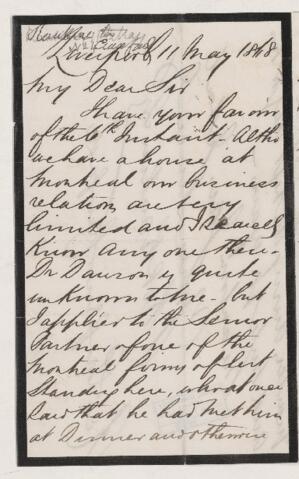 Liverpool 11 May 1868
My Dear Sir
I have your favour
of the 6th Instant. Altho
we have a house at
Montreal our business
relation are very
limited and I scarcely
know any one there.
Dr Dawson is quite
unknown to me - but
I applied to the Senior
Partner of one of the
Montreal firms of best
standing here, who at once
said that he had met him
at Dinner and otherwise